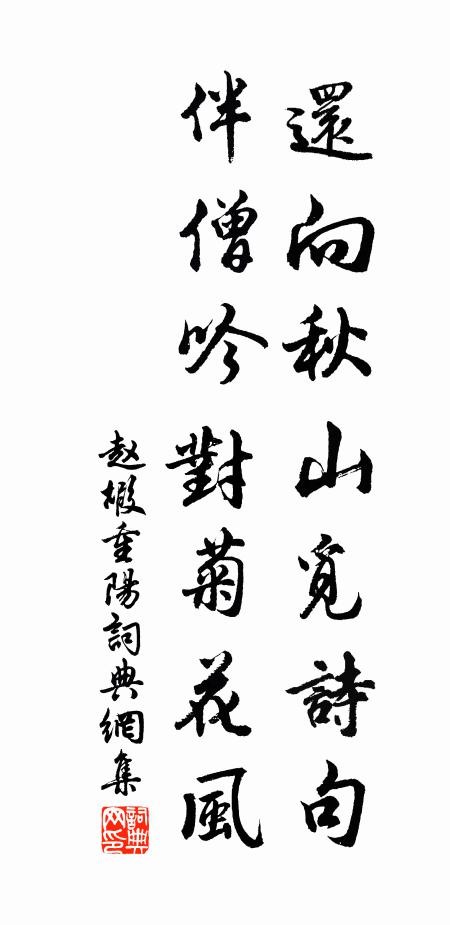 還向秋山覓詩句
伴僧吟對菊花風
赵嘏重陽詞典網集
詞典
网印